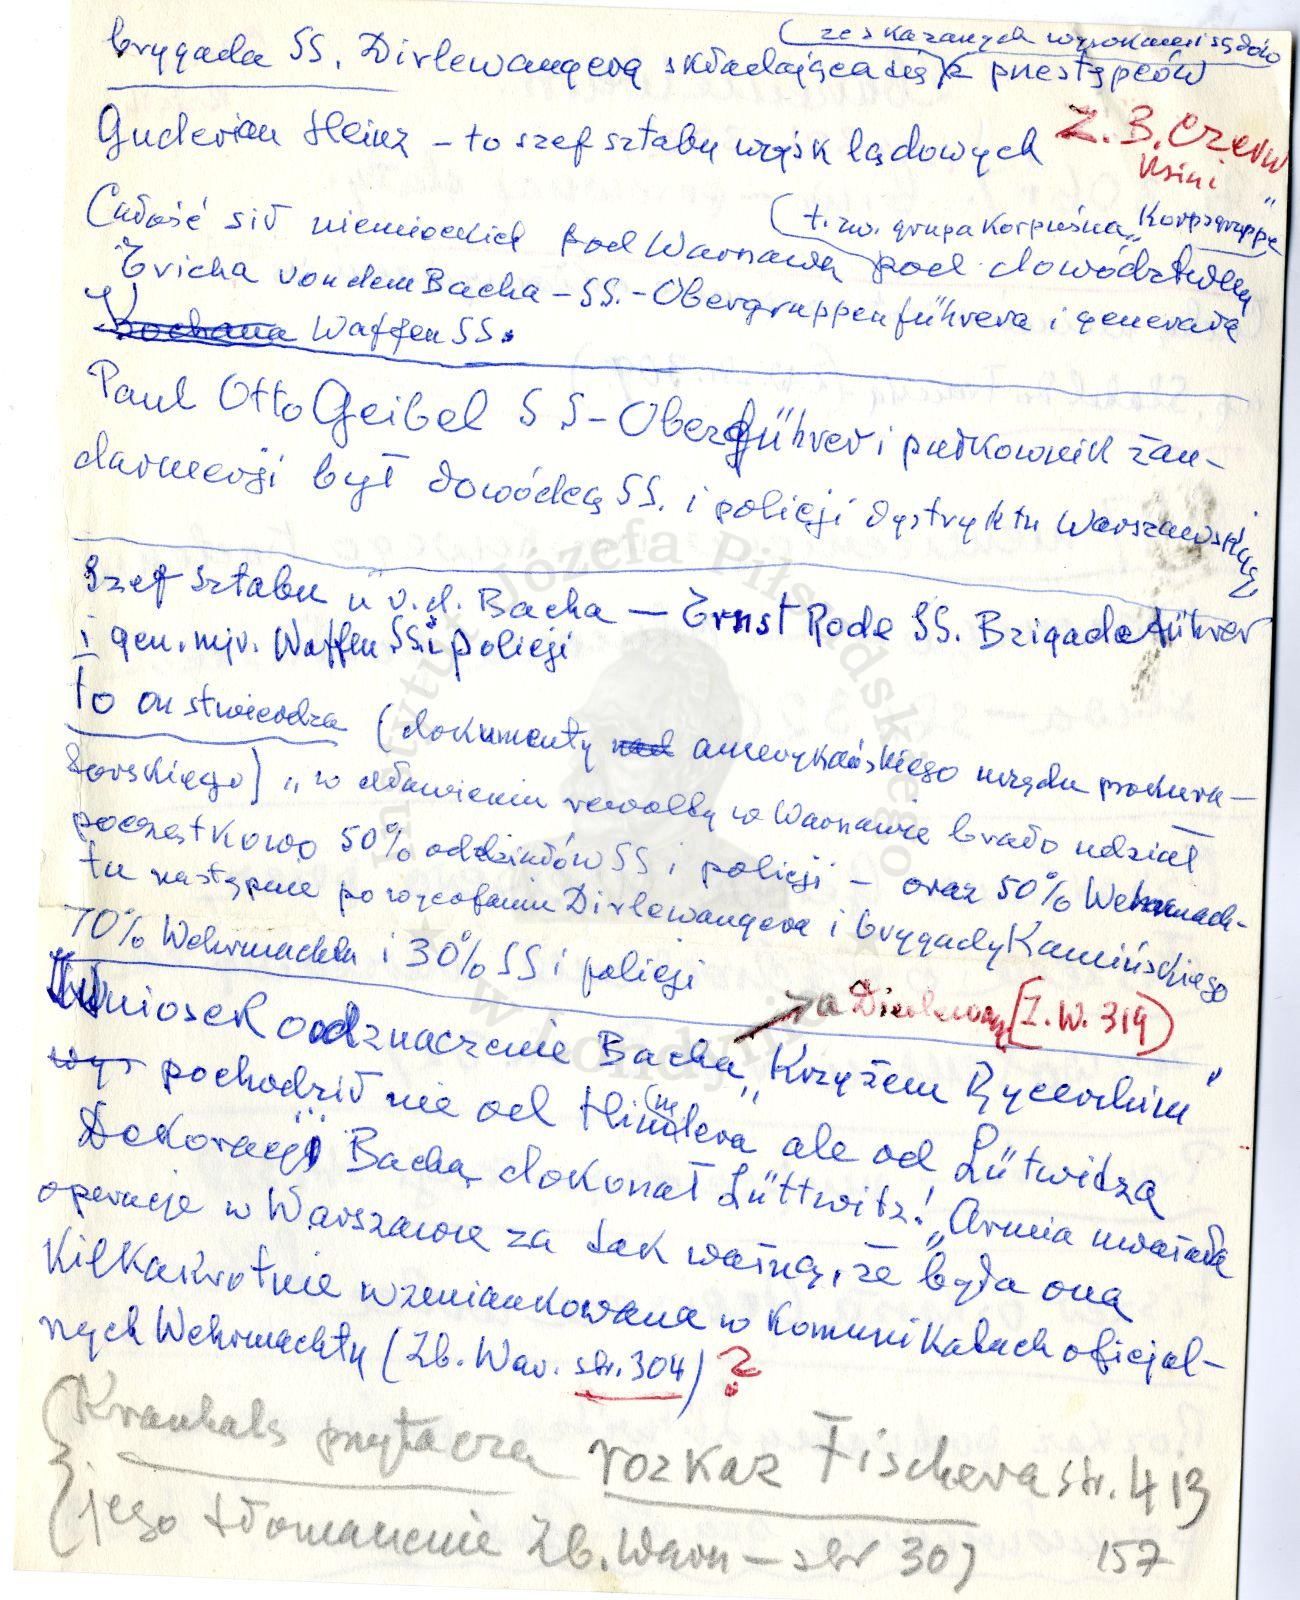 (ze skazanych wysokami sądów
brygada SS. Dirlewangera składająca się z przestępców
Guderian Heinz – to szef sztabu wojsk lądowych
Z. B. Czerw
(t. zw. grupa Korpuśna „Korpsgruppe"
Całość sił niemieckich pod Warszawą pod dowództwem
Ericha von dem Bacha – SS.-Obergruppenführera i generała
Waffen SS.
Paul Otto Geibel SS-Oberführer i pułkownik żan-
darmerji był dowódcą SS. i policji dystryktu Warszawskiego
Szef Sztabu u v. d. Bacha — Ernst Rode SS. Brigadeführer
i gen. mjr. Waffen SS i policji
to on stwierdza (dokumenty nad amerykańskiego urzędu prokura-
torskiego) „w dławieniu rewolty w Warszawie brało udział
początkowo 50% oddziałów SS i policji – oraz 50% Wehrmach-
tu następnie po wycofaniu Dirlewangera i brygady Kamińskiego
70% Wehrmachtu i 30% SS i policji
za Dirlewang (Z. W. 319)
Wniosek o odznaczenie Bacha „Krzyżem Rycerskim"
wys pochodził nie od Himmlera ale od Lütwidza
Dekoracji Bacha dokonał Lüttwitz! „Armia uważała
operacje w Warszawie za tak ważną, że była ona
Kilkakrotnie wzmiankowana w Komunikatach oficjal-
nych Wehrmachtu (Zb. War. str. 304) ?
Krauhals przytacza rozkaz Fischera str. 413
jego tłomaczenie Zb. Warn – str 307
157
Instytut Józefa Piłsudskiego
w Londynie